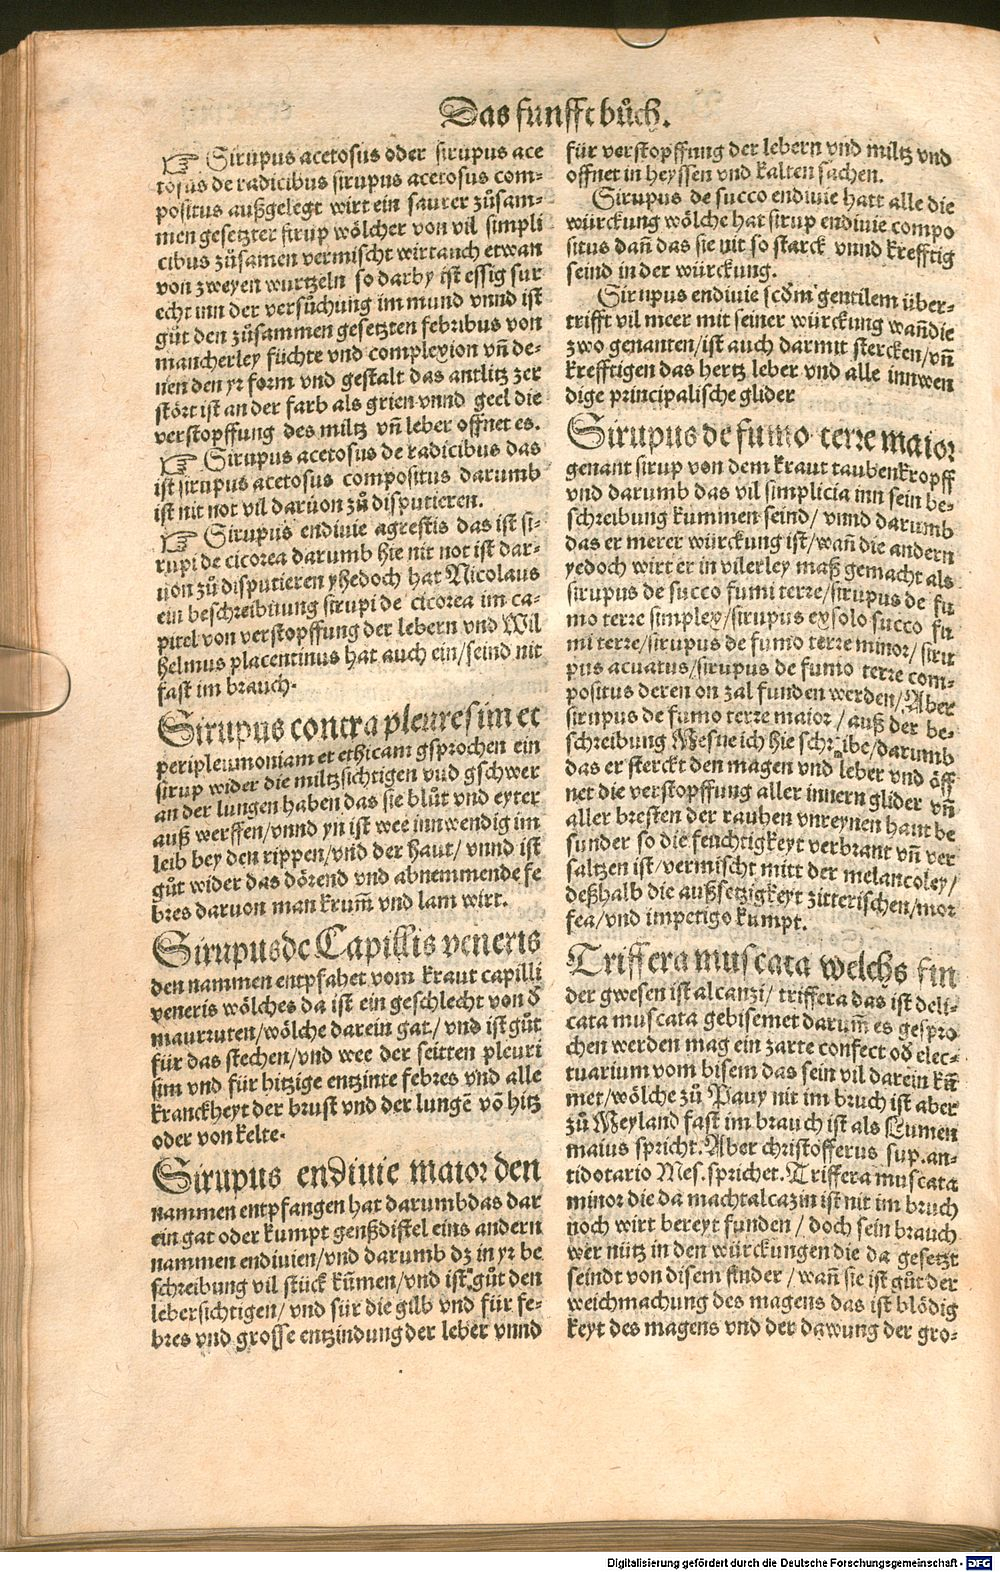 Das funfft bůch.
☞ Sirupus acetosus oder sirupus ace
tosus de radicibus sirupus acetosus com-
positus außgelegt wirt ein saurer zůsam-
men gesetzter sirup wölcher von vil simpli
cibus zůsamen vermischt wirt auch etwan
von zweyen wurtzeln so darby ist essig sur
echt inn der versůchung im mund vnnd ist
gůt den zůsammen gesetzten febribus von
mancherley füchte vnd complexion vñ de-
nen den yr form vnd gestalt das antlitz zer
stört ist an der farb als grien vnnd geel die
verstopffung des miltz vñ leber offnet es.
☞ Sirupus acetosus de radicibus das
ist sirupus acetosus compositus darumb
ist nit not vil daruon zů disputieren.
☞ Sirupus endiuie agrestis das ist si-
rupi de cicorea darumb hie nit not ist dar-
uon zů disputieren yhedoch hat Nicolaus
ein beschreibnung sirupi de cicorea im ca-
pitel von verstopffung der lebern vnd Wil
helmus placentinus hat auch ein/seind nit
fast im brauch.
Sirupus contra pleuresim et
peripleumoniam et ethicam gsprochen ein
sirup wider die miltzsichtigen vnd gschwer
an der lungen haben das sie blůt vnd eyter
auß werffen/vnnd yn ist wee innwendig im
leib bey den rippen/vnd der haut/ vnnd ist
gůt wider das dörend vnd abnemmende fe
bres daruon man krum̃ vnd lam wirt.
Sirupus de Capillis veneris
den nammen entpfahet vom kraut capilli
veneris wölches da ist ein geschlecht von d̄
maurruten/wölche darein gat/ vnd ist gůt
für das stechen/vnd wee der seitten pleuri
sim vnd für hitzige entzinte febres vnd alle
kranckheyt der brust vnd der lungē vō hitz
oder von kelte.
Sirupus endiuie maior den
nammen entpfangen hat darumb das dar
ein gat oder kumpt genßdistel eins andern
nammen endiuien/vnd darumb dz in yr be
schreibung vil stück kum̃en/vnd ist gůt den
lebersichtigen/vnd für die gilb vnd für fe-
bres vnd grosse entzindung der leber vnnd
für verstopffung der lebern vnd miltz vnd
offnet in heyssen vnd kalten sachen.
Sirupus de succo endiuie hatt alle die
würckung wölche hat sirup endiuie compo
situs dañ das sie nit so starck vnnd krefftig
seind in der würckung.
Sirupus endiuie scd̄m gentilem über-
trifft vil meer mit seiner würckung wañ die
zwo genanten/ist auch darmit stercken/vñ
krefftigen das hertz leber vnd alle innwen
dige principalische glider
Sirupus de fumo terre maior
genant sirup von dem kraut taubenkropff
vnd darumb das vil simplicia inn sein be-
schreibung kummen seind/ vnnd darumb
das er merer würckung ist/wañ die andern
yedoch wirt er in vilerley maß gemacht als
sirupus de succo fumi terre/sirupus de fu
mo terre simplex/sirupus ex solo succo fu
mi terre/sirupus de fumo terre minor/ siru
pus acuatus/sirupus de fumo terre com-
positus deren on zal funden werden/Aber
sirupus de fumo terre maior/ auß der be-
schreibung Mesue ich hie schribe/darumb
das er sterckt den magen vnd leber vnd öff
net die verstopffung aller innern glider vñ
aller bresten der rauhen vnreynen haut be
sunder so die feuchtigkeyt verbrant vñ ver
saltzen ist/vermischt mitt der melancoley/
deßhalb die außsetzigkeyt zitterischen/mor
fea/vnd impetigo kumpt.
Triffera muscata welchs fin
der gwesen ist alcanzi/ triffera das ist deli-
cata muscata gebisemet darum̃ es gespro
chen werden mag ein zarte confect od̄ elec-
tuarium vom bisem das sein vil darein kū
met/wölche zů Pauy nit im bruch ist aber
zů Meyland fast im brauch ist als Lumen
maius spricht. Aber christofferus sup. an-
tidotario Mes. sprichet. Triffera muscata
minor die da macht alcazin ist nit im bruch
noch wirt bereyt funden/ doch sein brauch
wer nütz in den würckungen die da gesetzt
seindt von disem finder/wañ sie ist gůt der
weichmachung des magens das ist blödig
keyt des magens vnd der dawung der gro-
Digitalisierung gefördert durch die Deutsche Forschungsgemeinschaft - DFG